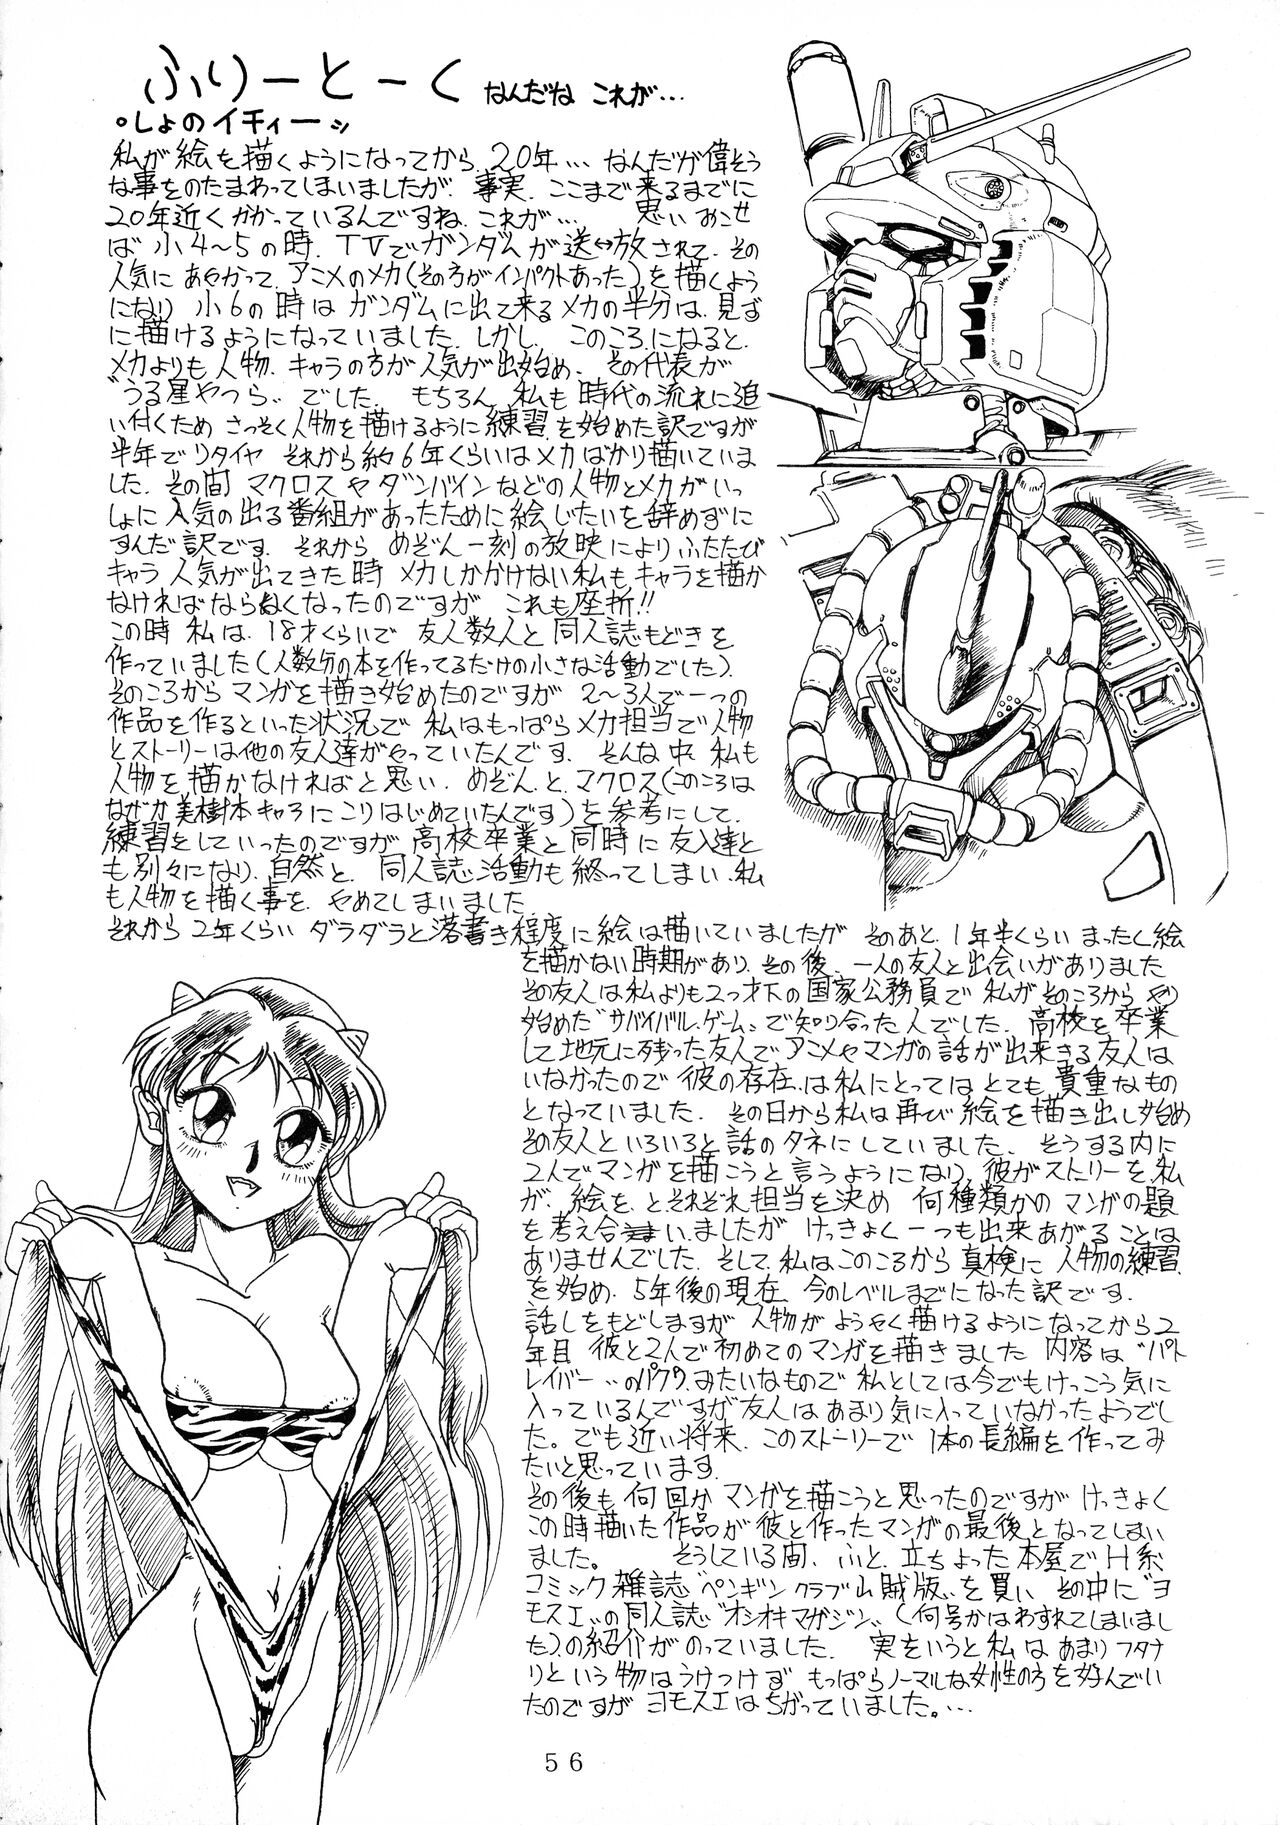 ふりーとーく なんだね これが…
・しょのイチィーッ
私が絵を描くようになってから 20年… なんだが偉そう
な事をのたまわってしまいましたが、事実、ここまで来るまでに
20年近くかかっているんですね、これが… 思いおこせ
ば 小4〜5の時、TVでガンダムが送↔放されて、その
人気にあやかって、アニメのメカ(その方がインパクトあった)を描くよう
になり 小6の時は ガンダムに出て来るメカの半分は、見ず
に描けるようになっていました。しかし、このころになると、
メカよりも人物、キャラの方が人気が出始め、その代表が
〝うる星やつら〟でした。もちろん、私も時代の流れに追
い付くため さっそく人物を描けるように練習を始めた訳ですが
半年でリタイヤ それから約6年くらいはメカばかり描いていま
した。その間 マクロスやダンバインなどの人物とメカがいっ
しょに人気の出る番組があったために絵じたいを辞めずに
すんだ訳です。それから めぞん一刻の放映によりふたたび
キャラ人気が出てきた時 メカしかかけない私もキャラを描か
なければならなくなったのですが これも座折!!
この時 私は、18才くらいで 友人数人と同人誌もどきを
作っていました(人数分の本を作ってるだけの小さな活動でした)。
そのころからマンガを描き始めたのですが 2〜3人で一つの
作品を作るといった状況で 私はもっぱらメカ担当で人物
とストーリーは他の友人達がやっていたんです。そんな中、私も
人物を描かなければと思い、めぞんと、マクロス(このころは
なぜか美樹本キャラにこりはじめていたんです)を参考にして、
練習をしていったのですが高校卒業と同時に友人達と
も別々になり、自然と、同人誌活動も終ってしまい、私
も人物を描く事を、やめてしまいました
それから2年くらい ダラダラと落書き程度に絵は描いていましたが そのあと、1年半くらい まったく絵
を描かない時期があり、その後、一人の友人と出会いがありました
その友人は私よりも2つ才下の国家公務員で 私がそのころから やり
始めた〝サバイバル・ゲーム〟で知り合った人でした。高校を卒業
して地元に残った友人でアニメやマンガの話が出来きる友人は
いなかったので 彼の存在、は私にとってはとても貴重なもの
となっていました。その日から私は再び絵を描き出し始め
その友人といろいろと話のタネにしていました。そうする内に
2人でマンガを描こうと言うようになり、彼がストーリーを、私
が、絵を、とそれぞれ担当を決め 何種類かのマンガの題
を考え合いましたが けっきょく一つも出来あがることは
ありませんでした。そして、私はこのころから真検に人物の練習
を始め、5年後の現在、今のレベルまでになった訳です。
話しをもどしますが 人物がようやく描けるようになってから2
年目 彼と2人で初めてのマンガを描きました 内容は〝パト
レイバー〟のパクリみたいなもので 私としては今でもけっこう気に
入っているんですが友人はあまり気に入っていなかったようでし
た。でも近い将来、このストーリーで 1本の長編を作ってみ
たいと思っています。
その後も何回かマンガを描こうと思ったのですが けっきょく
この時描いた作品が彼と作ったマンガの最後となってしまい
ました。 そうしている間、ふと、立ちよった本屋でH系
コミック雑誌〝ペンギンクラブ山賊版〟を買い その中に〝ヨ
モスエ〟の同人誌〝オシオキマガジン〟(何号かはわすれてしまいまし
た)の紹介がのっていました。実をいうと私は あまりフタナ
リという物はうけつけず もっぱらノーマルな女性の方を好んでい
たのですが ヨモスエはちがっていました。…
56